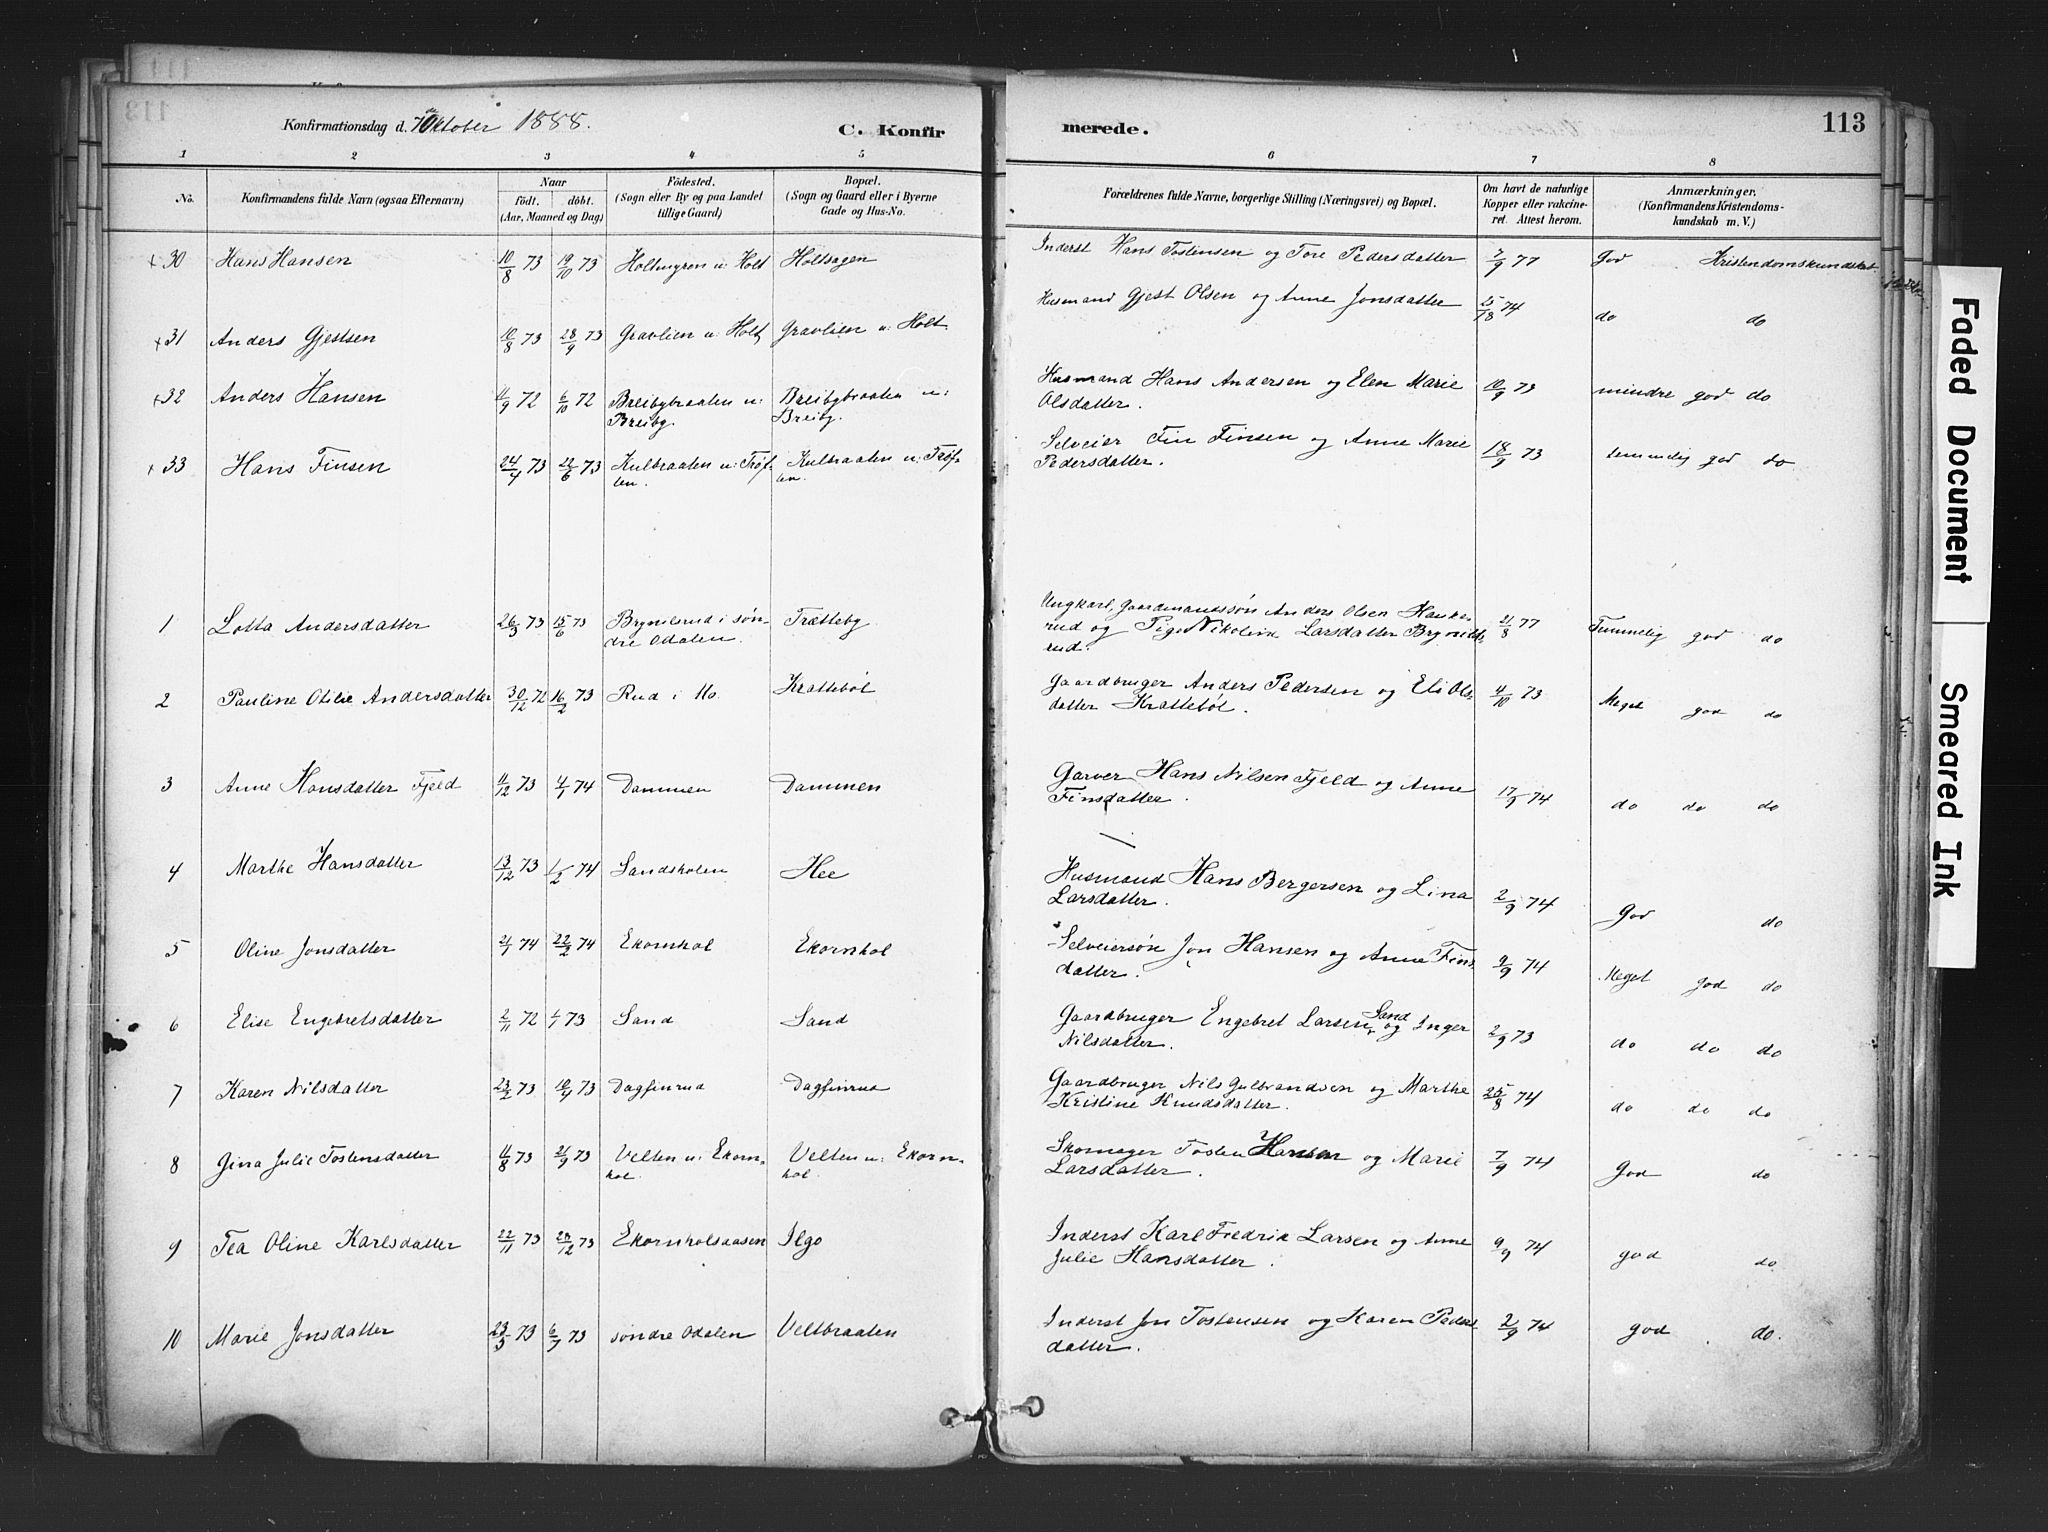 Konfirmationsdag d. 7 Oktober 1888.
C. Konfirmerede.
113
1 2 3 4 5 6 7 8
No.
Konfirmandens fulde Navn (ogsaa Efternavn)
Naar
födt. döbt.
(Aar, Maaned og Dag)
Födested.
(Sogn eller By og paa Landet
tillige Gaard)
Bopæl.
(Sogn og Gaard eller i Byerne
Gade og Hus-No.
Forældrenes fulde Navne, borgerlige Stilling (Næringsvei) og Bopæl.
Om havt de naturlige
Kopper eller vakcine-
ret. Attest herom.
Anmærkninger.
(Konfirmandens Kristendoms-
kundskab m. V.)
x 30 Hans Hansen 10/8 73 19/10 73 Holtmyren u: Holt Holthagen Inderst Hans Tostensen og Tore Pedersdatter 7/9 77 God Kristendomskundskab
x 31 Anders Gjestsen 10/8 73 28/9 73 Gravlien u: Holt Gravlien u: Holt Husmand Gjest Olsen og Anne Jonsdatter 74 do do
x 32 Anders Hansen 11/9 72 6/10 72 Breibybraaten u: Breibybraaten u: Husmand Hans Andersen og Elen Marie 10/9 73 mindre god do
Breiby. Breiby. Olsdatter.
x 33 Hans Finsen 24/4 73 22/6 73 Kulbraaten u: Trøf- Kulbraaten u: Trøf- Selveier Fin Finsen og Anne Marie 18/9 73 temmelig god do
ten. ten. Pedersdatter.
1 Lotta Andersdatter 26/3 73 15/6 73 Brynilsrud i søn- Trætteby Ungkarl, Gaardmandssøn Anders Olsen 21/8 77 Temmelig god do
dre Odalen. rud og Pige Nikoline Larsdatter
rud.
2 Pauline Otilie Andersdatter 30/12 72 16/2 73 Rud i Mo. Krattebøl Gaardbruger Anders Pedersen og Eli Ols- 4/10 73 Meget god do
datter Krattebøl.
3 Anne Hansdatter Fjeld 11/12 73 4/1 74 Dammen Dammen Garver Hans Nilsen Fjeld og Anne 17/9 74 do do do
Finsdatter.
4 Marthe Hansdatter 13/12 73 1/2 74 Sandsholen Hee Husmand Hans Bergersen og Lina 2/9 74 God do
Larsdatter.
5 Oline Jonsdatter 21/1 74 22/2 74 Ekornhol Ekornhol Selveiersøn Jon Hansen og Anne Fins- 9/9 74 Meget god do
datter.
6 Elise Engebretsdatter 2/11 72 1/1 73 Sand Sand Gaardbruger Engebret Larsen Sand og Inger 2/9 73 do do do
Nilsdatter.
7 Karen Nilsdatter 23/2 73 10/4 73 Dagfinrud Dagfinrud Gaardbruger Nils Gulbrandsen og Marthe 25/8 74 do do do
Kristine Knudsdatter.
8 Gina Julie Tostensdatter 11/8 73 21/9 73 Velten u: Ekorn- Velten u: Ekorn- Skomager Tosten Hansen og Marie 7/9 74 God do
hol. hol. Larsdatter.
9 Tea Oline Karlsdatter 22/11 73 73 Ekornholsaasen Ilgo Inderst Karl Fredrik Larsen og Anne 9/9 74 god do
Julie Hansdatter.
10 Marie Jonsdatter 23/3 73 6/7 73 søndre Odalen Veltbraaten Inderst Jon Tostensen og Karen Peders- 2/9 74 god do.
datter.
Faded Document
Smeared Ink